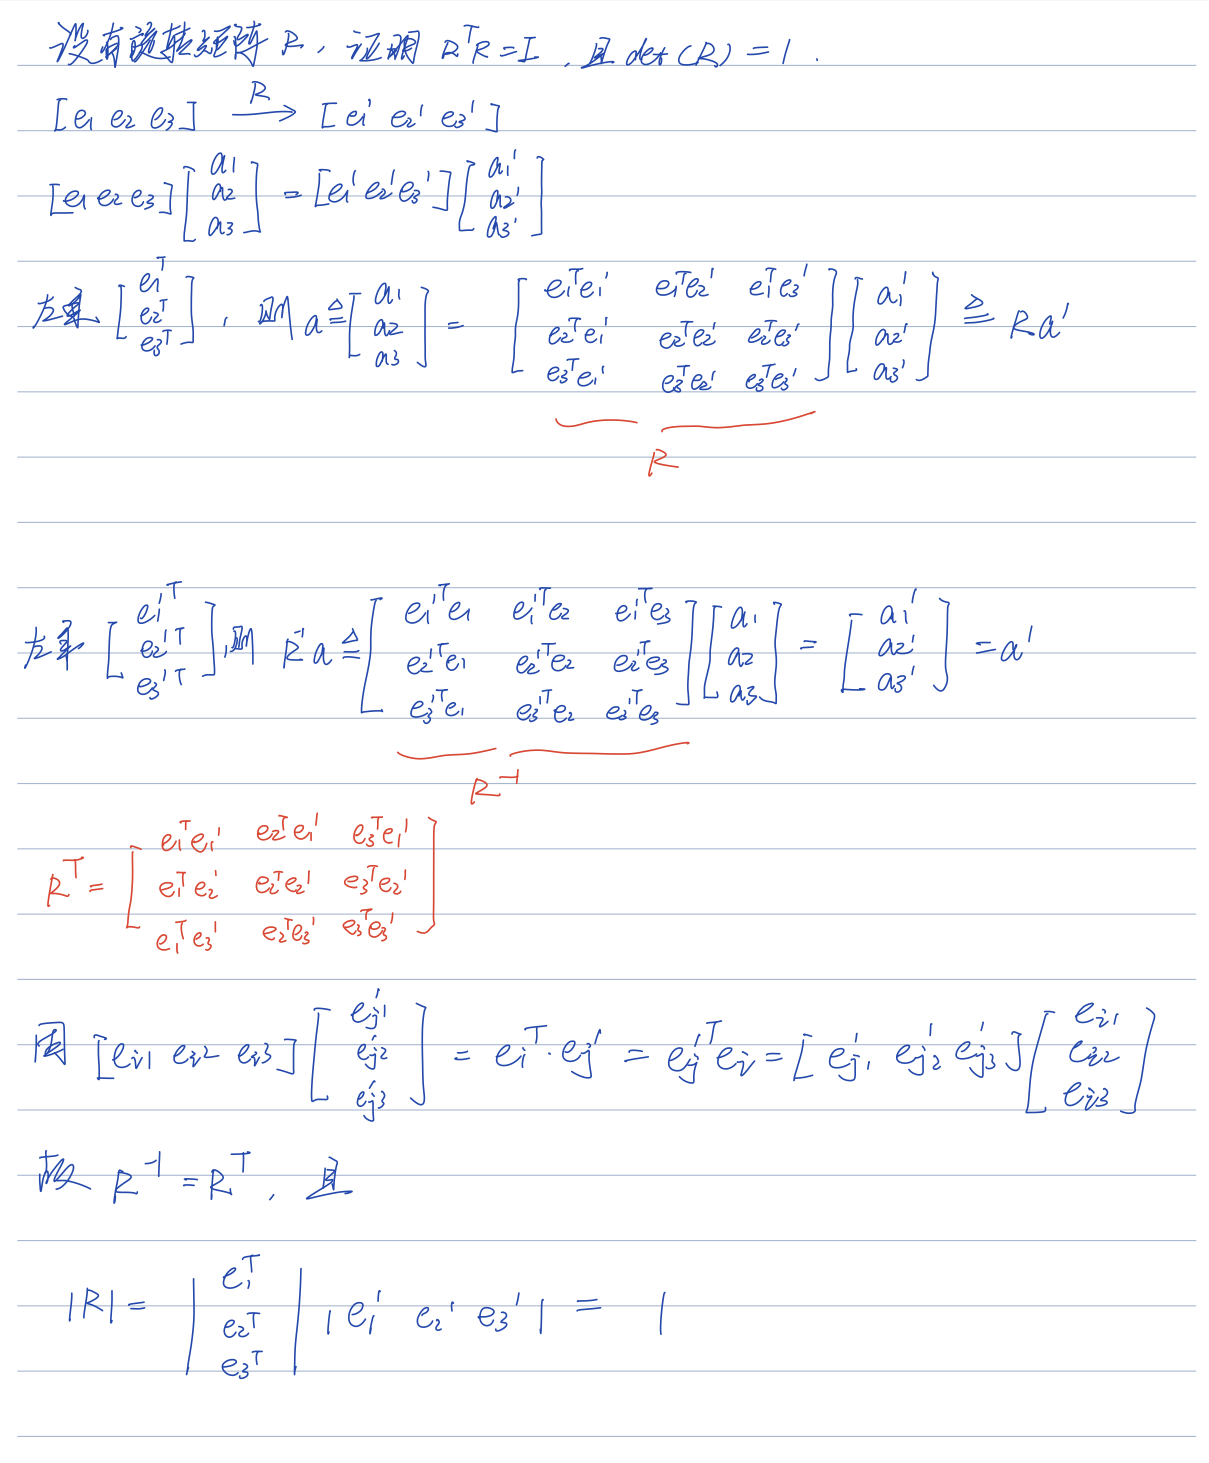 设有旋转矩阵 R, 证明 RᵀR = I, 且 det(R) = 1.
[e₁ e₂ e₃] —R→ [e₁' e₂' e₃']
[e₁ e₂ e₃] [a₁ a₂ a₃] = [e₁' e₂' e₃'] [a₁' a₂' a₃']
左乘 [e₁ᵀ e₂ᵀ e₃ᵀ], 则 a ≜ [a₁ a₂ a₃] = [e₁ᵀe₁' e₁ᵀe₂' e₁ᵀe₃' e₂ᵀe₁' e₂ᵀe₂' e₂ᵀe₃' e₃ᵀe₁' e₃ᵀe₂' e₃ᵀe₃'] [a₁' a₂' a₃'] ≜ Ra'
R
左乘 [e₁'ᵀ e₂'ᵀ e₃'ᵀ], 则 R⁻¹a ≜ [e₁'ᵀe₁ e₁'ᵀe₂ e₁'ᵀe₃ e₂'ᵀe₁ e₂'ᵀe₂ e₂'ᵀe₃ e₃'ᵀe₁ e₃'ᵀe₂ e₃'ᵀe₃] [a₁ a₂ a₃] = [a₁' a₂' a₃'] = a'
R⁻¹
Rᵀ = [e₁ᵀe₁' e₂ᵀe₁' e₃ᵀe₁' e₁ᵀe₂' e₂ᵀe₂' e₃ᵀe₂' e₁ᵀe₃' e₂ᵀe₃' e₃ᵀe₃']
因 [eᵢ₁ eᵢ₂ eᵢ₃] [eⱼ₁' eⱼ₂' eⱼ₃'] = eᵢᵀ·eⱼ' = eⱼ'ᵀeᵢ = [eⱼ₁' eⱼ₂' eⱼ₃'] [eᵢ₁ eᵢ₂ eᵢ₃]
故 R⁻¹ = Rᵀ, 且
|R| = |e₁ᵀ e₂ᵀ e₃ᵀ| |e₁' e₂' e₃'| = 1